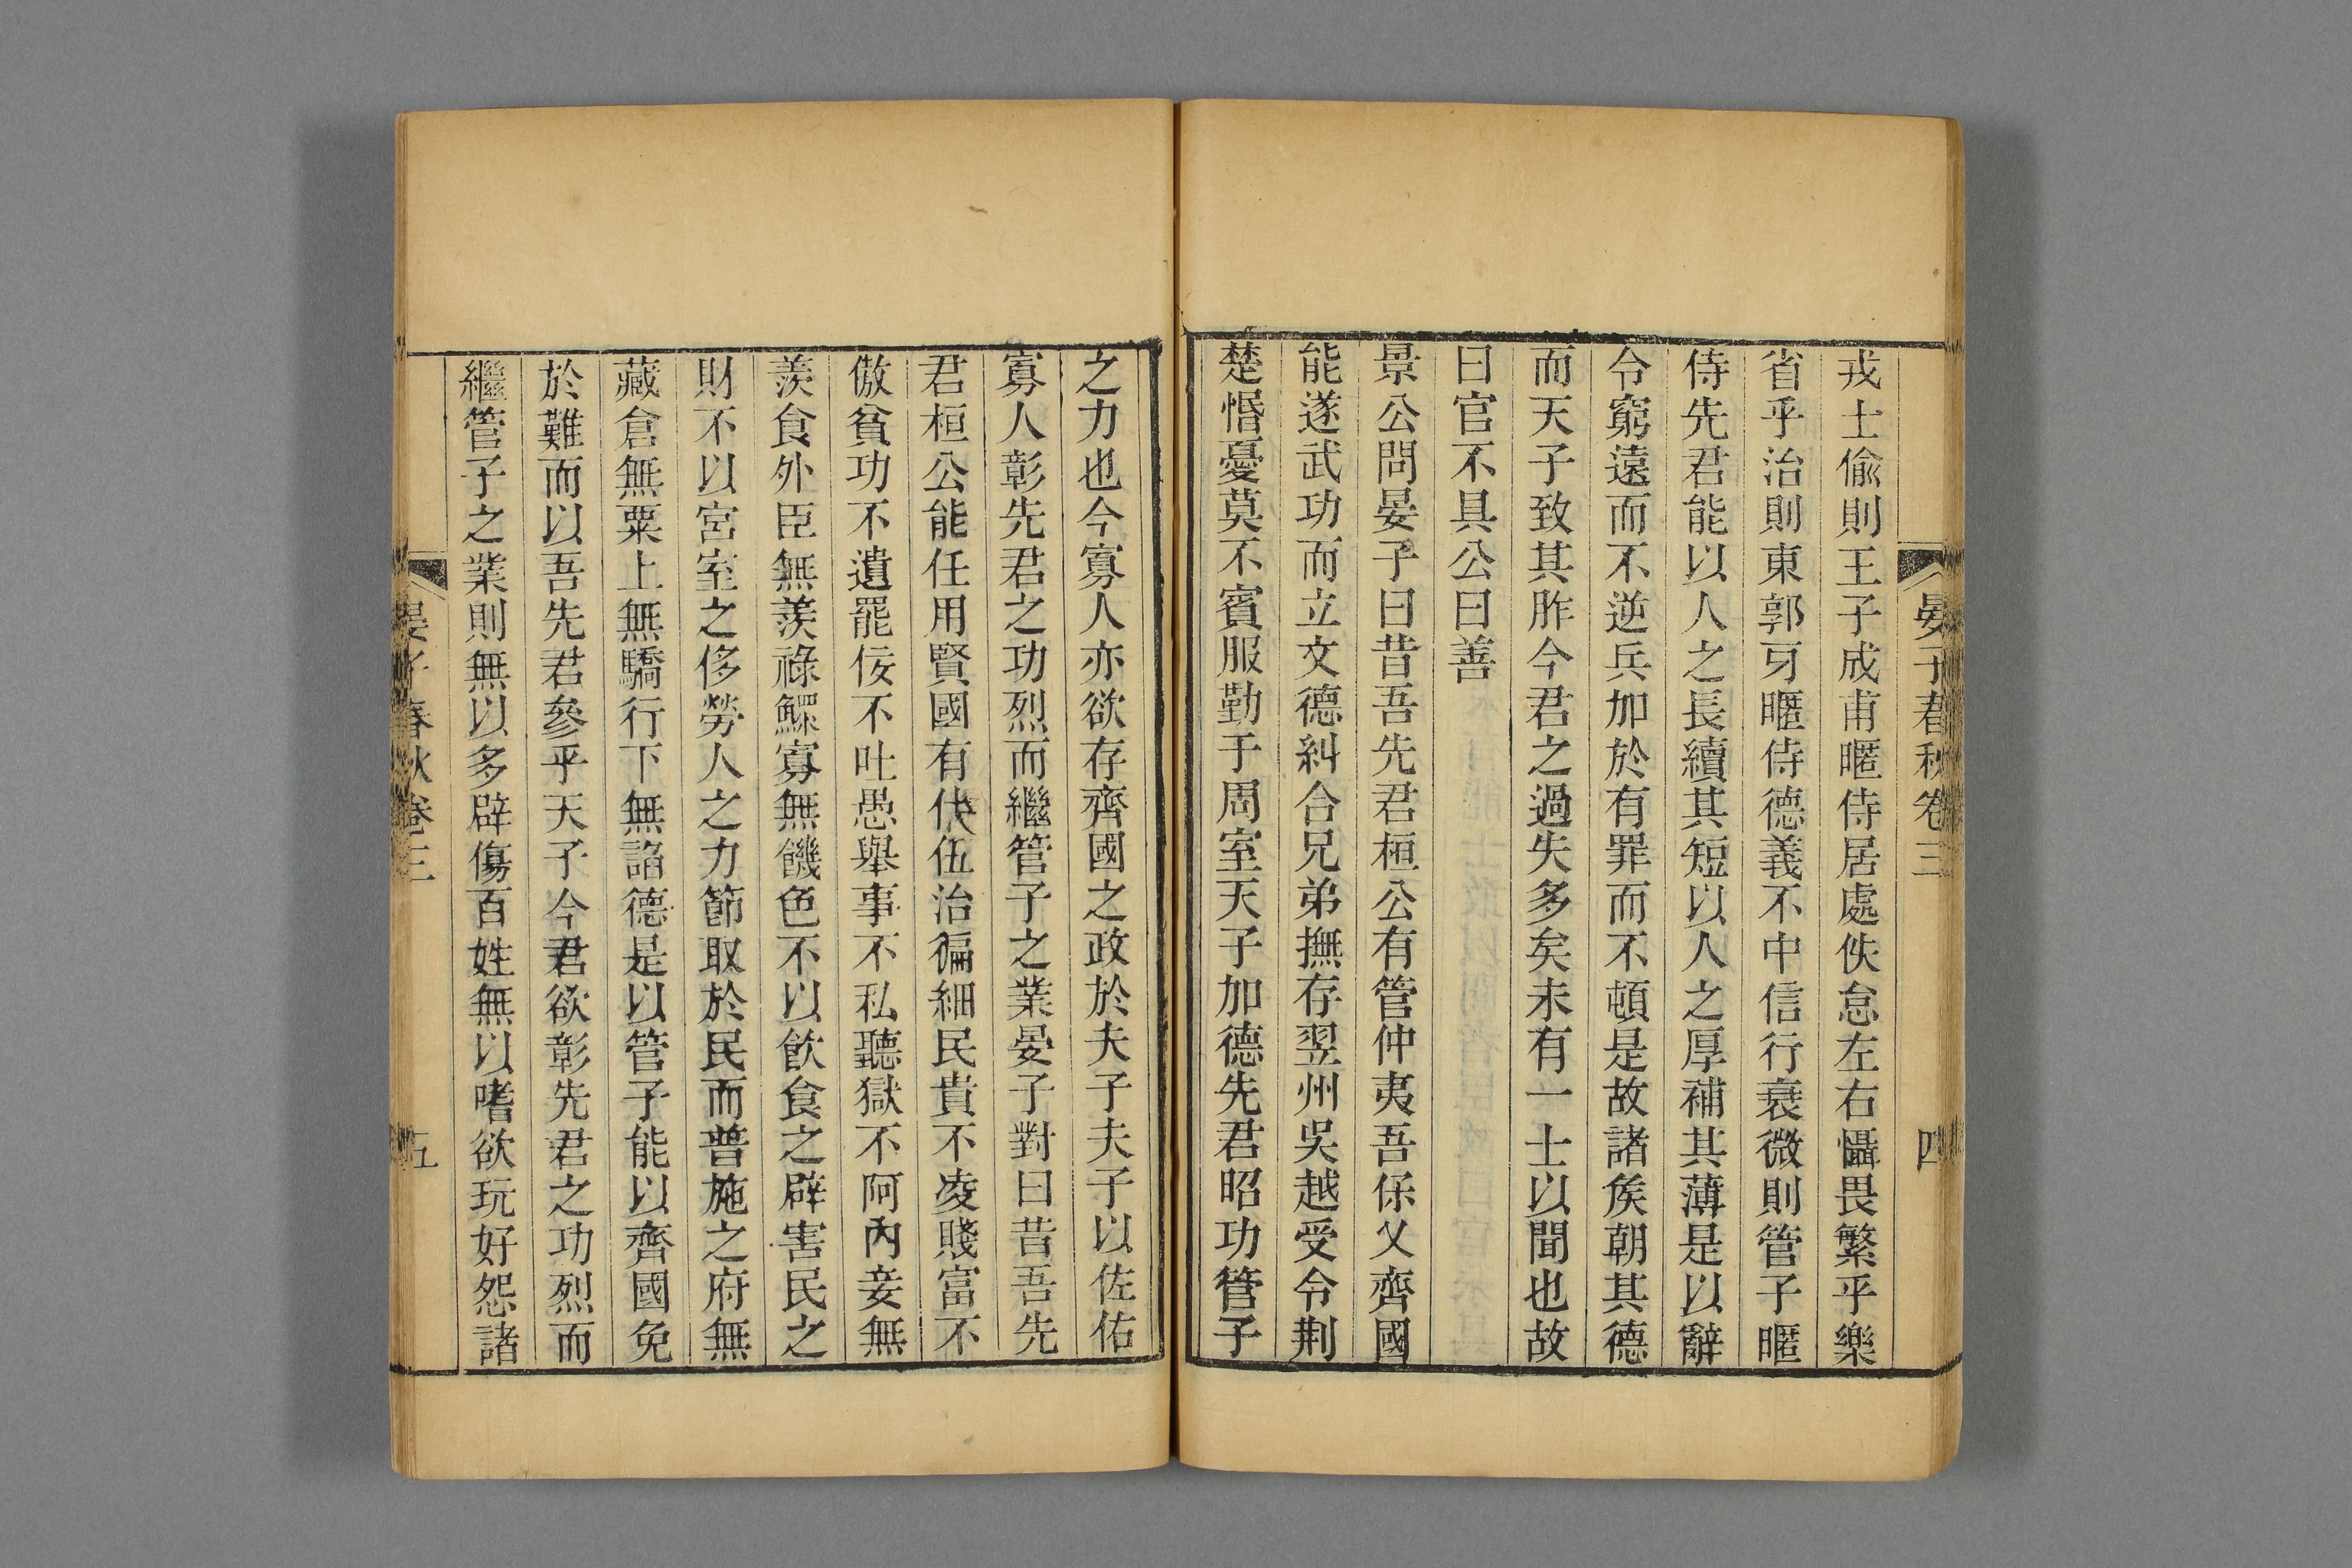 晏子春秋卷三 四
戎士偷則王子成甫暱侍居處佚怠左右懾畏繁乎樂
省乎治則東郭牙暱侍德義不中信行衰微則管子暱
侍先君能以人之長續其短以人之厚補其薄是以辭
令窮遠而不逆兵加於有罪而不頓是故諸矦朝其德
而天子致其胙今君之過失多矣未有一士以聞也故
曰官不具公曰善
景公問晏子曰昔吾先君桓公有管仲夷吾保乂齊國
能遂武功而立文德糾合兄弟撫存翌州吳越受令荆
楚惛憂莫不賓服勤于周室天子加德先君昭功管子
之力也今寡人亦欲存齊國之政於夫子夫子以佐佑
寡人彰先君之功烈而繼管子之業晏子對曰昔吾先
君桓公能任用賢國有什伍治徧細民貴不凌賤富不
傲貧功不遺罷佞不吐愚舉事不私聽獄不阿內妾無
羨食外臣無羨祿鰥寡無饑色不以飲食之辟害民之
財不以宮室之侈勞人之力節取於民而普施之府無
藏倉無粟上無驕行下無諂德是以管子能以齊國免
於難而以吾先君參乎天子今君欲彰先君之功烈而
繼管子之業則無以多辟傷百姓無以嗜欲玩好怨諸
晏子春秋卷三 五